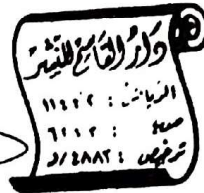 دار القاسم للنشر
الرياض : ١١٤٤٢
ص ب : ٦٣٧٣
ترخيص : ٤٨٨٢/د